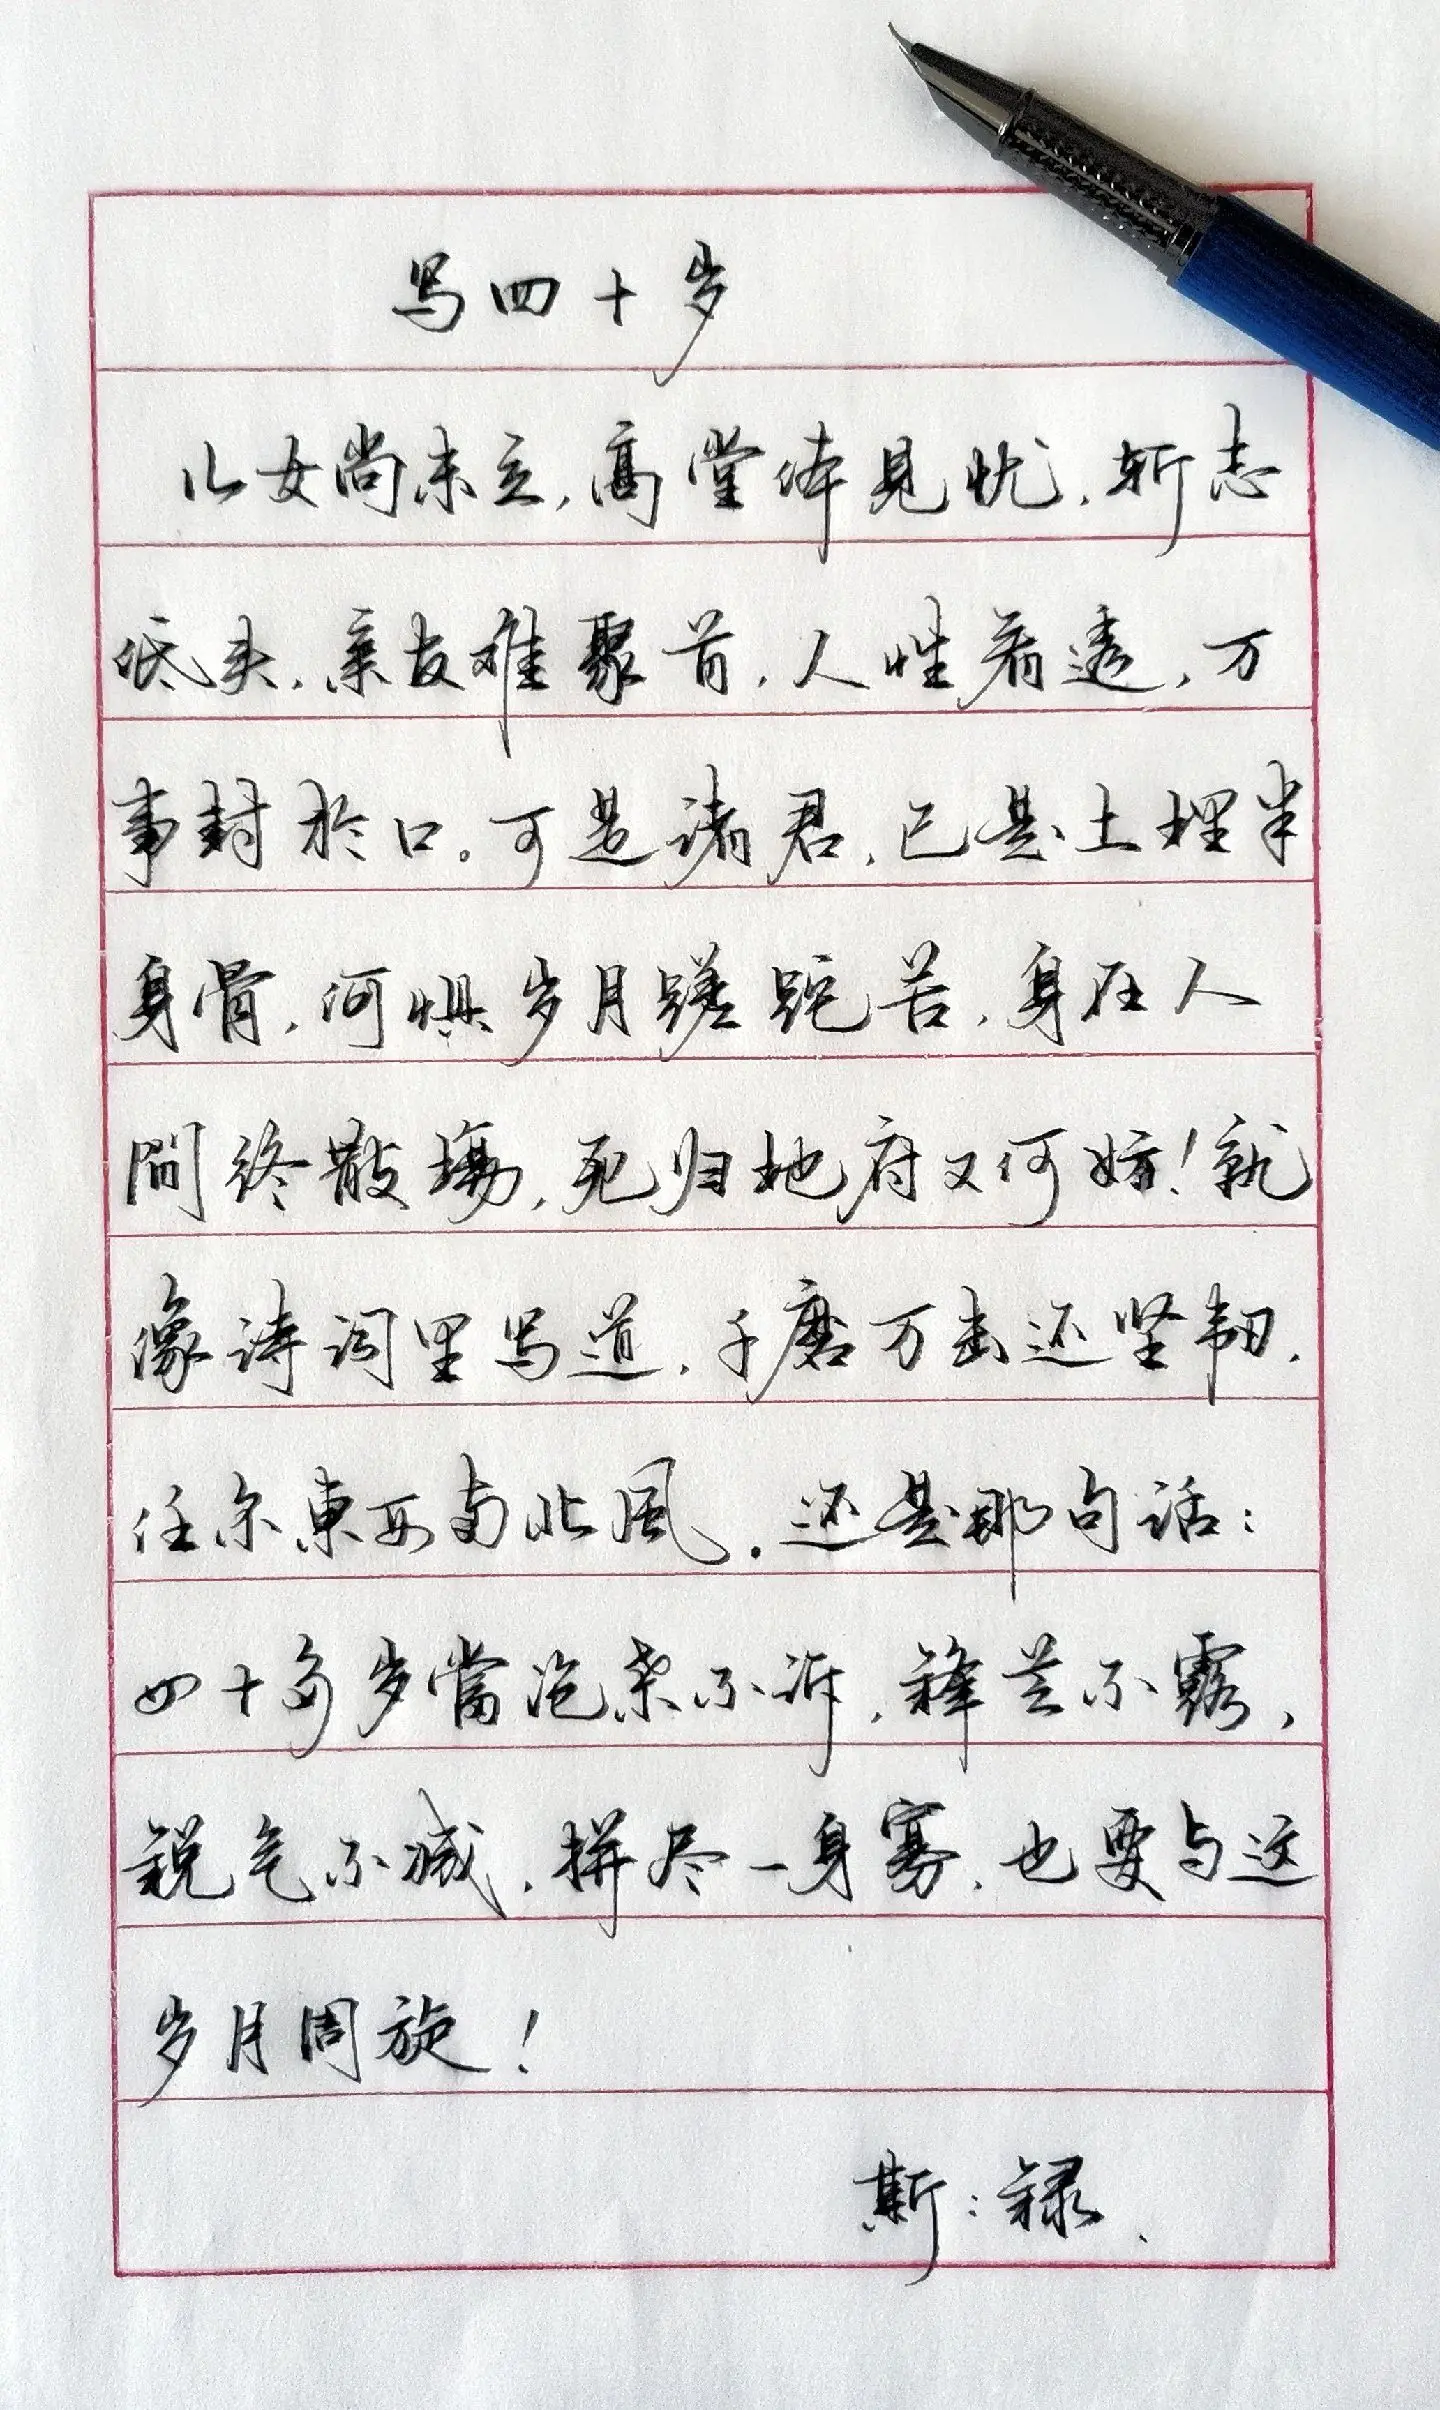 写四十岁
儿女尚未立,高堂体见忧,斩志
低头,亲友难聚首,人性看透,万
事封於口。可是诸君,已是土埋半
身骨,何惧岁月蹉跎苦,身在人
間终散場,死归地府又何妨!就
像诗词里写道,千磨万击还坚韧,
任尔東西南北風.还是那句话:
四十多岁當沧桑不诉,锋芒不露,
锐气不减,拼尽一身寡,也要与这
岁月周旋!
斯:録.